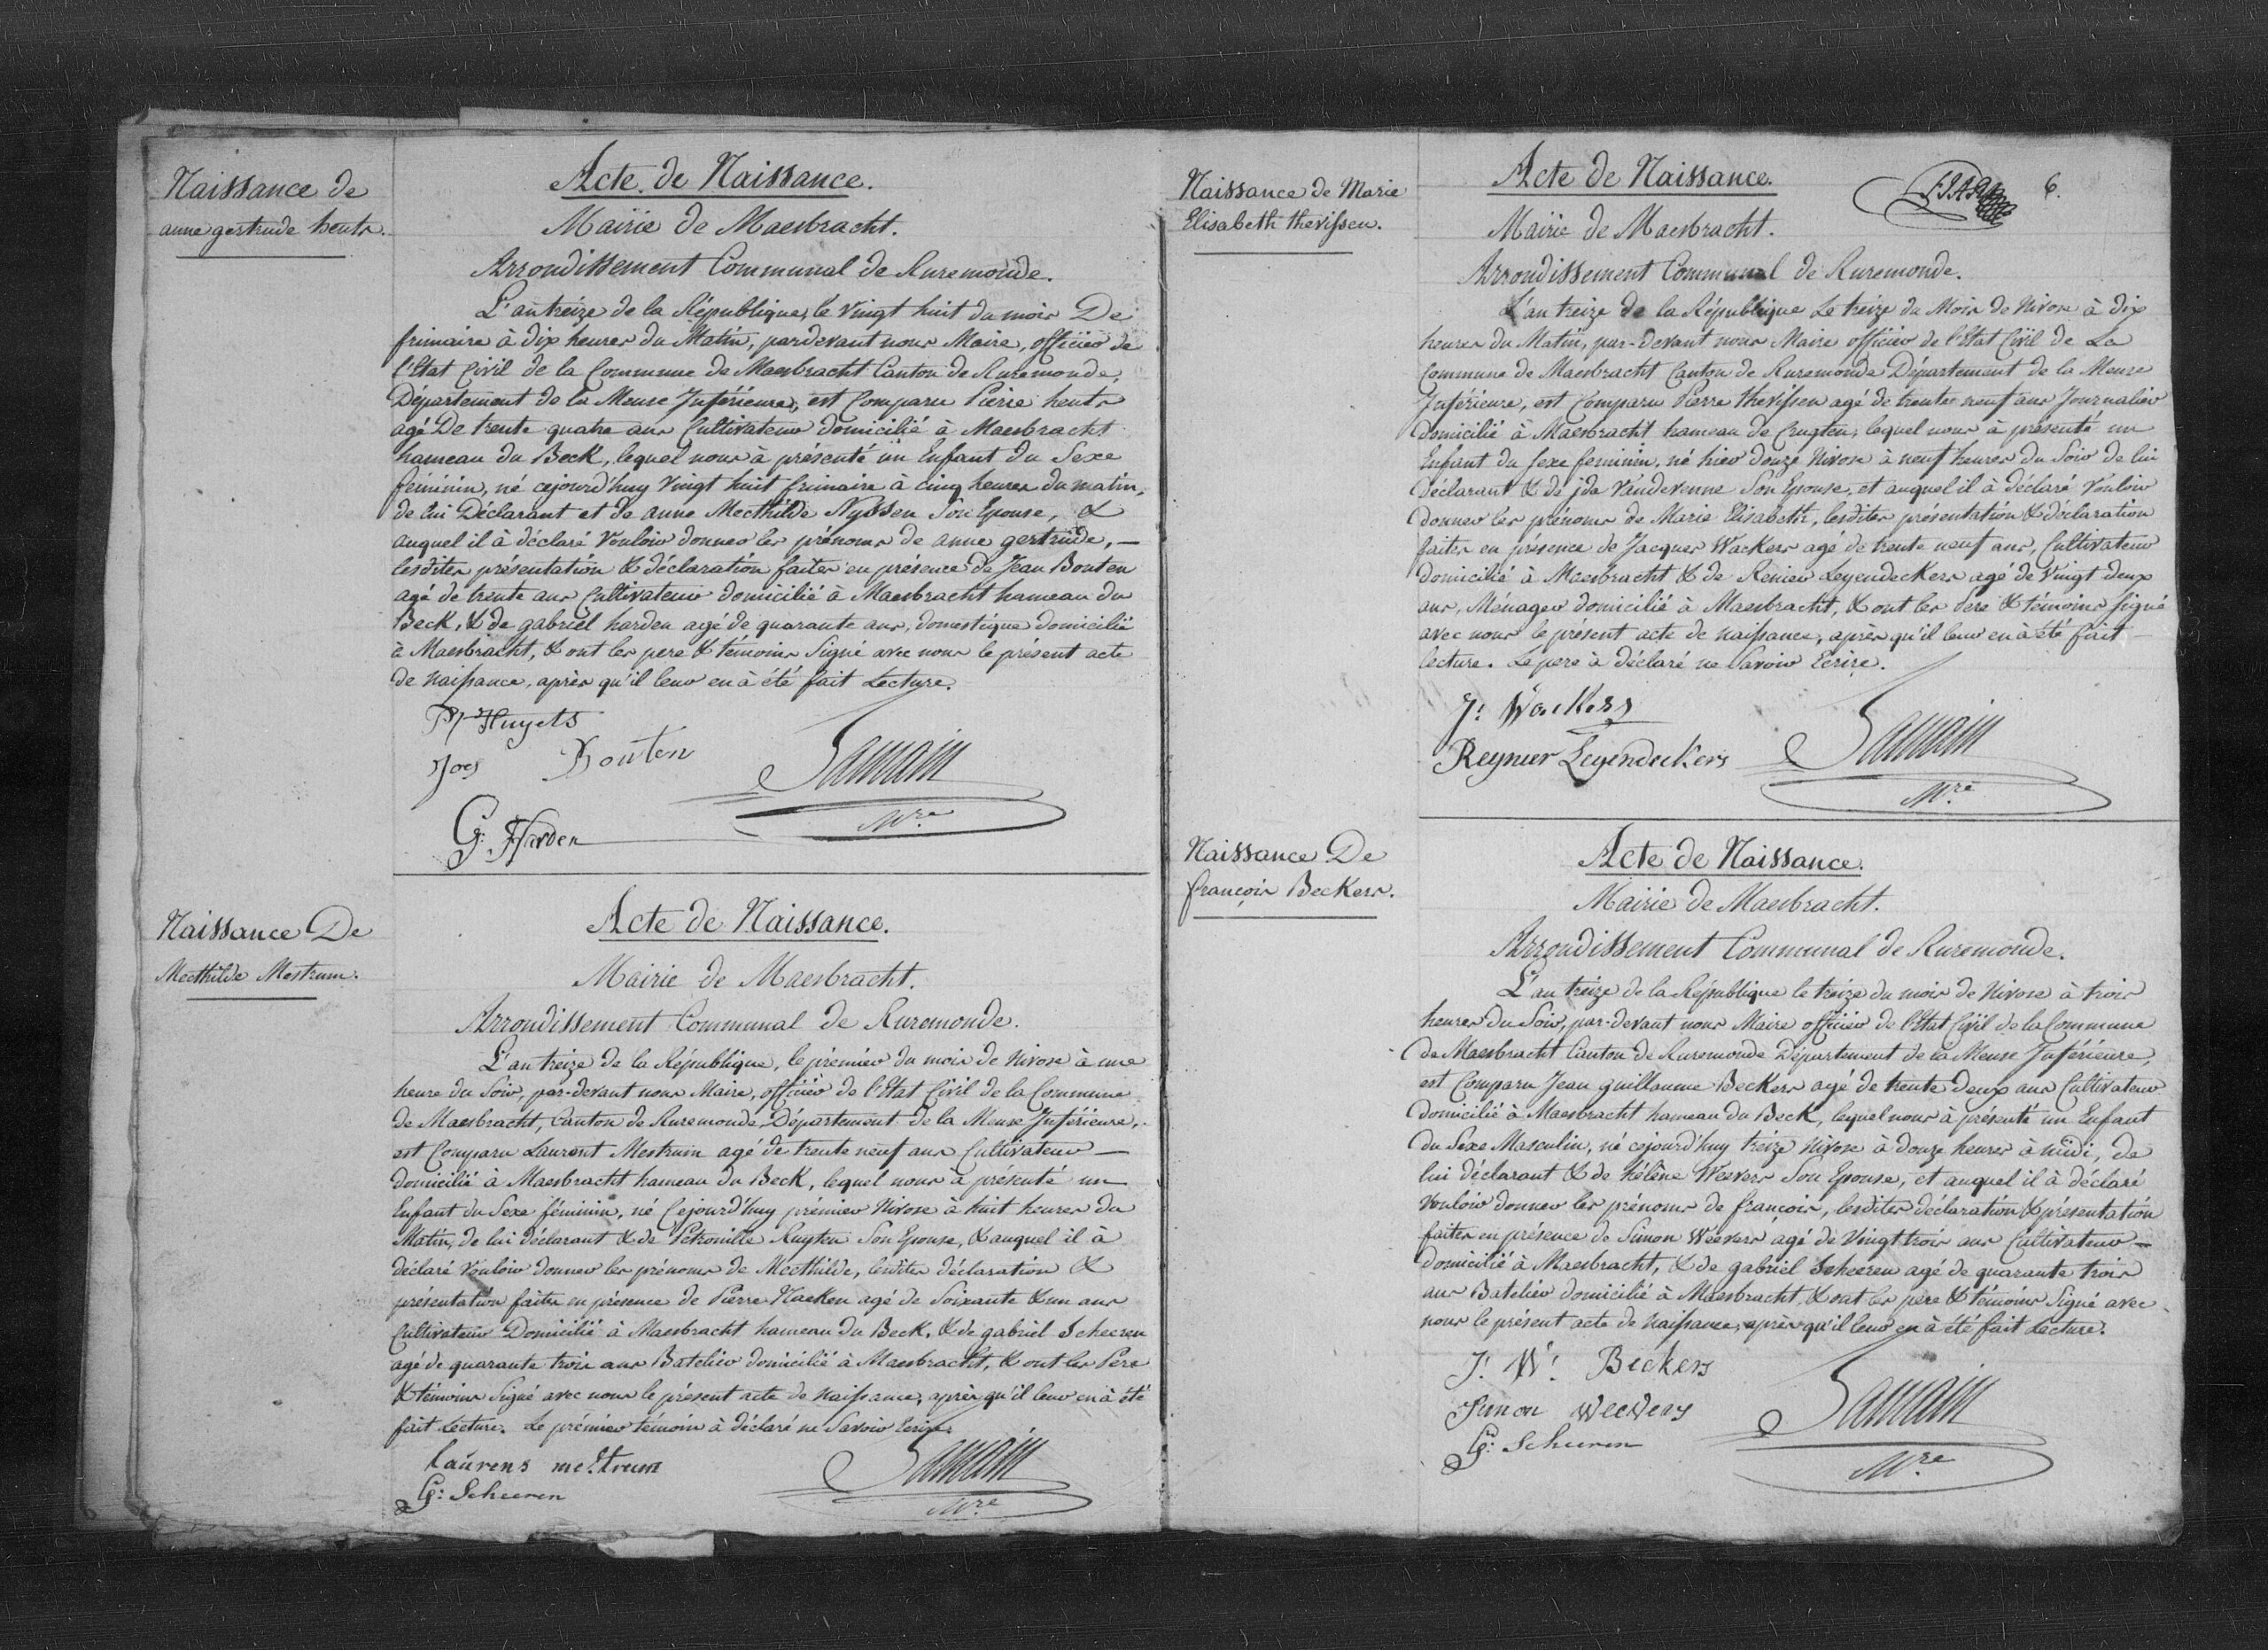 Naissance de
anne gertrude heuts.
Acte de Naissance.
Mairie de Maesbracht.
Arrondissement Communal de Ruremonde.
L'an treize de la République, le vingt huit du mois De
frimaire à dix heures du Matin, pardevant nous Maire, officier de
l'Etat Civil de la Commune de Maesbracht Canton de Ruremonde,
Département de la Meuse Inférieure, est Comparu Pierre heuts
agé De trente quatre ans Cultivateur domicilié à Maesbracht
hameau du Beck, lequel nous à présenté un Enfant du Sexe
feminin, né cejourd'huy vingt huit frimaire à cinq heures du matin,
de lui Déclarant et de anne Mecthilde Nyssen Son Epouse, &
auquel il à déclaré vouloir donner les prénoms de anne gertrude, —
lesdites présentation & déclaration faites en présence de Jean Bouten
agé de trente ans Cultivateur domicilié à Maesbracht hameau du
Beck, & de gabriel harden agé de quarante ans, domestique domicilié
à Maesbracht, & ont les pere & témoins Signé avec nous le présent acte
de naissance, après qu'il leur en à été fait Lecture.
P. Huyets
Joes Bouten
G: Harden
Samain
Mre
Naissance De
Mecthilde Mestrum.
Acte de Naissance.
Mairie de Maesbracht.
Arrondissement Communal de Ruremonde.
L'an treize de la République, le prémier du mois de Nivose à une
heure du Soir, par-devant nous Maire, officier de l'Etat Civil de la Commune
de Maesbracht, Canton de Ruremonde, Département de la Meuse Inférieure,
est Comparu Laurent Mestrum agé de trente neuf ans Cultivateur —
domicilié à Maesbracht hameau du Beck, lequel nous à présenté un
Enfant du Sexe féminin, né Cejourd'huy prémier Nivose à huit heures du
Matin, de lui déclarant & de Pétronille Ruyten Son Epouse, & auquel il à
déclaré vouloir donner les prénoms de Mecthilde, lesdites déclaration &
présentation faites en présence de Pierre Naeken agé de Soixante & un ans
Cultivateur Domicilié à Maesbracht hameau du Beck, & de gabriel Scheeren
agé de quarante trois ans Batelier domicilié à Maesbracht, & ont les Pere
& témoins Signé avec nous le présent acte de naissance, après qu'il leur en à été
fait Lecture. Le prémier témoin à déclaré ne Savoir Ecrire.
laurens mestrum
G: Scheeren
Samain
Mre
Naissance de Marie
Elisabeth thevissen.
Acte de Naissance.
6.
Mairie de Maesbracht.
Arrondissement Communal de Ruremonde.
L'an treize de la République Le treize du Mois de Nivose à dix
heures du Matin, par-devant nous Maire officier de l'Etat Civil de La
Commune de Maesbracht Canton de Ruremonde Département de la Meuse
Inférieure, est Comparu Pierre thevissen agé de trente neuf ans Journalier
domicilié à Maesbracht hameau de Crugten, lequel nous à présenté un
Enfant du Sexe feminin, né hier douze Nivose à neuf heures du Soir de lui
Déclarant & de jda Vandevenne Son Epouse, et auquel il à déclaré vouloir
donner les prénoms de Marie Elisabeth, lesdites présentation & déclaration
faites en présence de Jacques Wackers agé de trente neuf ans, Cultivateur
domicilié à Maesbracht & de Renier Leyendeckers agé de vingt deux
ans, Ménager domicilié à Maesbracht, & ont les Pere & témoins signé
avec nous le présent acte de naissance, après qu'il leur en à été fait —
lecture. Le pere à déclaré ne Savoir Ecrire.
J: Wackers
Reynier Leyendeckers
Samain
Mre
Naissance De
françois Beckers.
Acte de Naissance.
Mairie de Maesbracht.
Arrondissement Communal de Ruremonde.
L'an treize de la République le treize du mois de Nivose à trois
heures du Soir, par-devant nous Maire officier de l'Etat Civil de la Commune
de Maesbracht Canton de Ruremonde Département de la Meuse Inférieure,
est Comparu Jean guillaume Beckers agé de trente deux ans Cultivateur
domicilié à Maesbracht hameau du Beck, lequel nous à présenté un Enfant
du Sexe Masculin, né cejourd'huy treize Nivose à douze heures à midi, de
lui déclarant & de hélène Weevers Son Epouse, et auquel il à déclaré
vouloir donner les prénoms de françois, lesdites déclaration & présentation
faites en présence de Simon Weevers agé de vingt trois ans Cultivateur —
domicilié à Maesbracht, & de gabriel Scheeren agé de quarante trois
ans Batelier domicilié à Maesbracht, & ont les pere & témoins Signé avec
nous le présent acte de naissance, après qu'il leur en à été fait Lecture.
J: W: Beckers
Simon weewers
G: Scheeren
Samain
Mre